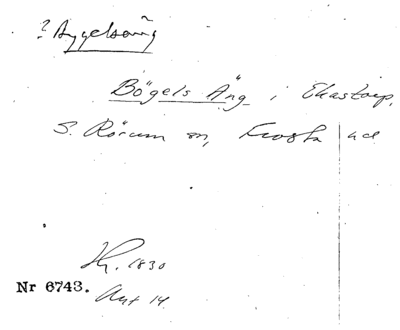 ? Byggelsäng
Bögels Äng i Ekastorp,
S. Rörum sn, Frosta hd
Hy. 1830
Nr 6743.
Akt 14